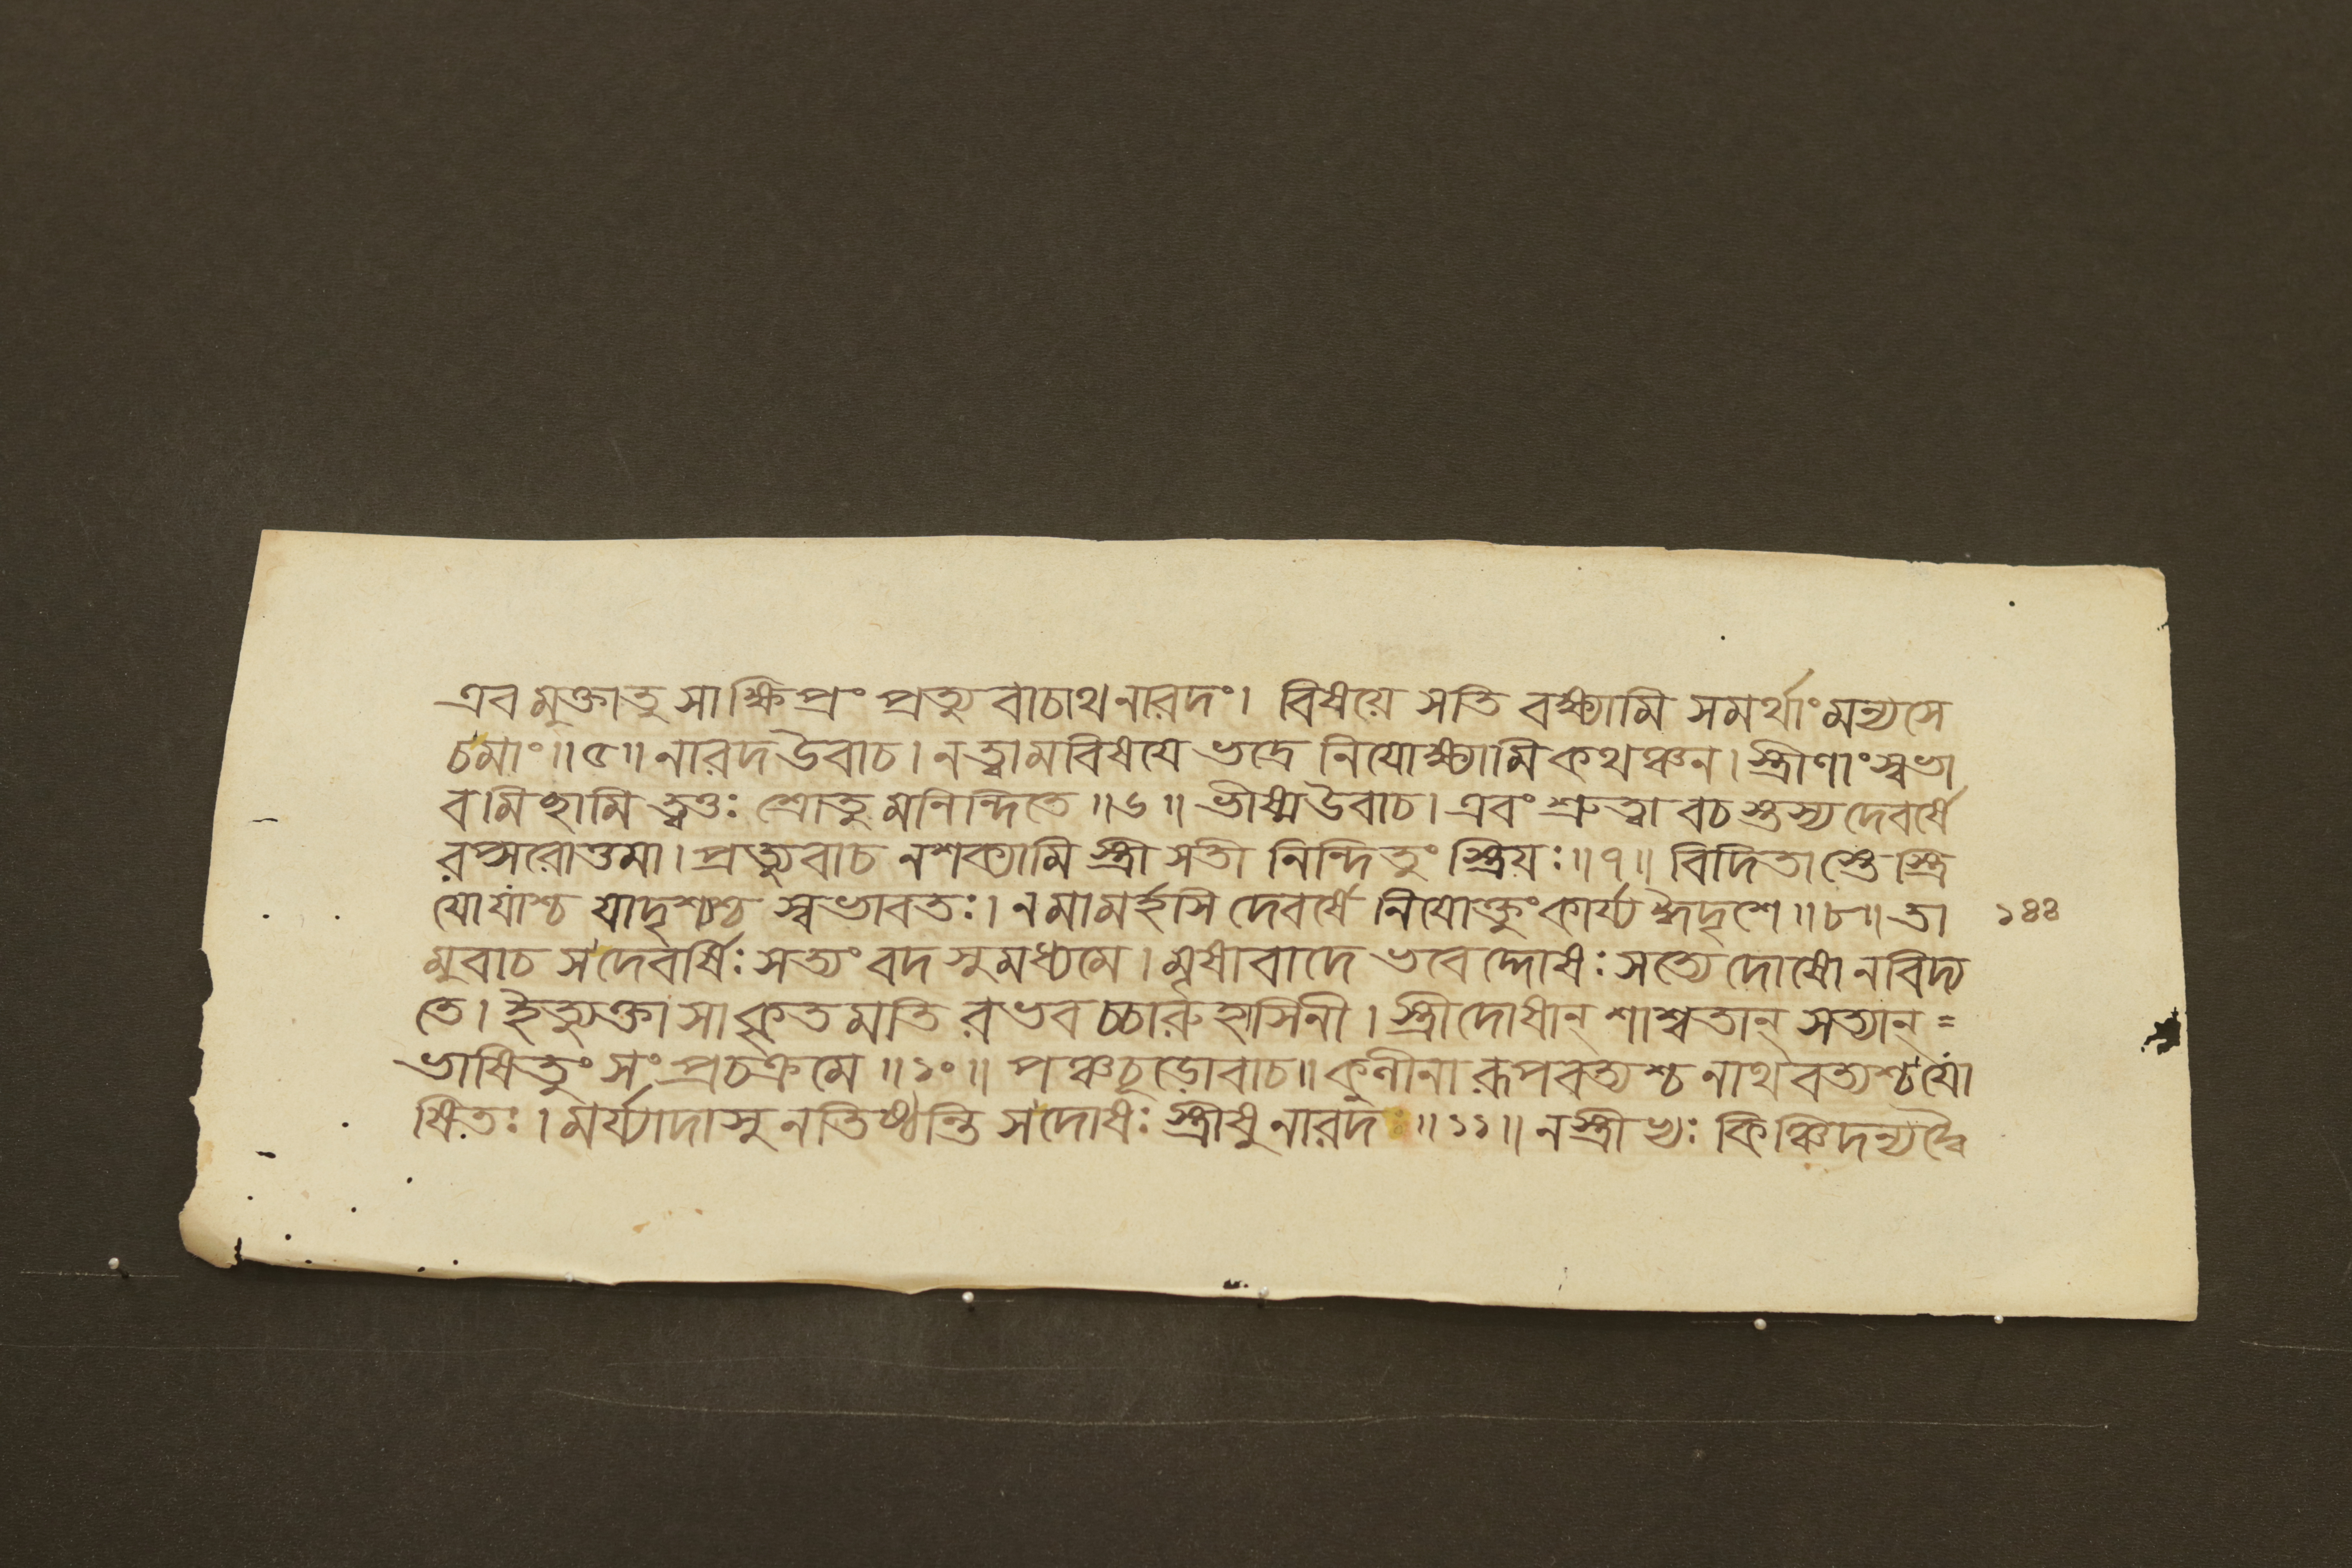 এবমুক্তাতু সাক্ষিপ্রং প্রত্যুবাচাথনারদং। বিষয়ে সতি বক্ষ্যামি সমর্থাংমন্যসে
চমাং॥৫॥ নারদউবাচ। নত্বামবিষয়ে ভদ্রে নিযোক্ষ্যামিকথঞ্চন। স্ত্রীণাংস্বভা
বমিচ্ছামি ত্বত্তঃ শ্রোতুমনিন্দিতে ॥৬॥ ভীষ্মউবাচ। এবং শ্রুত্বা বচস্তস্যদেবর্ষে
রপ্সরোত্তমা। প্রত্যুবাচ নশক্যামি স্ত্রী সতী নিন্দিতুং স্ত্রিয়ঃ॥৭॥ বিদিতাস্তে স্ত্রি
যোযাশ্চ যাদৃশ্যশ্চ স্বভাবতঃ। নমামর্হসি দেবর্ষে নিযোক্তুংকার্য্যঈদৃশে॥৮॥ তা
মুবাচ সদেবর্ষিঃ সত্যং বদ সুমধ্যমে। মৃষাবাদে ভবেদ্দোষঃ সত্যেদোষোনবিদ্য
তে। ইত্যুক্তা সা কৃতমতি রভবচ্চারুহাসিনী। স্ত্রীদোষান্ শাশ্বতান্ সত্যান্ =
ভাষিতুং সংপ্রচক্রমে ॥১০॥ পঞ্চচূড়োবাচ॥ কুলীনা রূপবত্যশ্চ নাথবত্যশ্চযো
ষিতঃ। মর্য্যাদাসু নতিষ্ঠন্তি সদোষঃ স্ত্রীষু নারদ ॥১১॥ নস্ত্রীভ্যঃ কিঞ্চিদন্যদ্বৈ
১৪৪